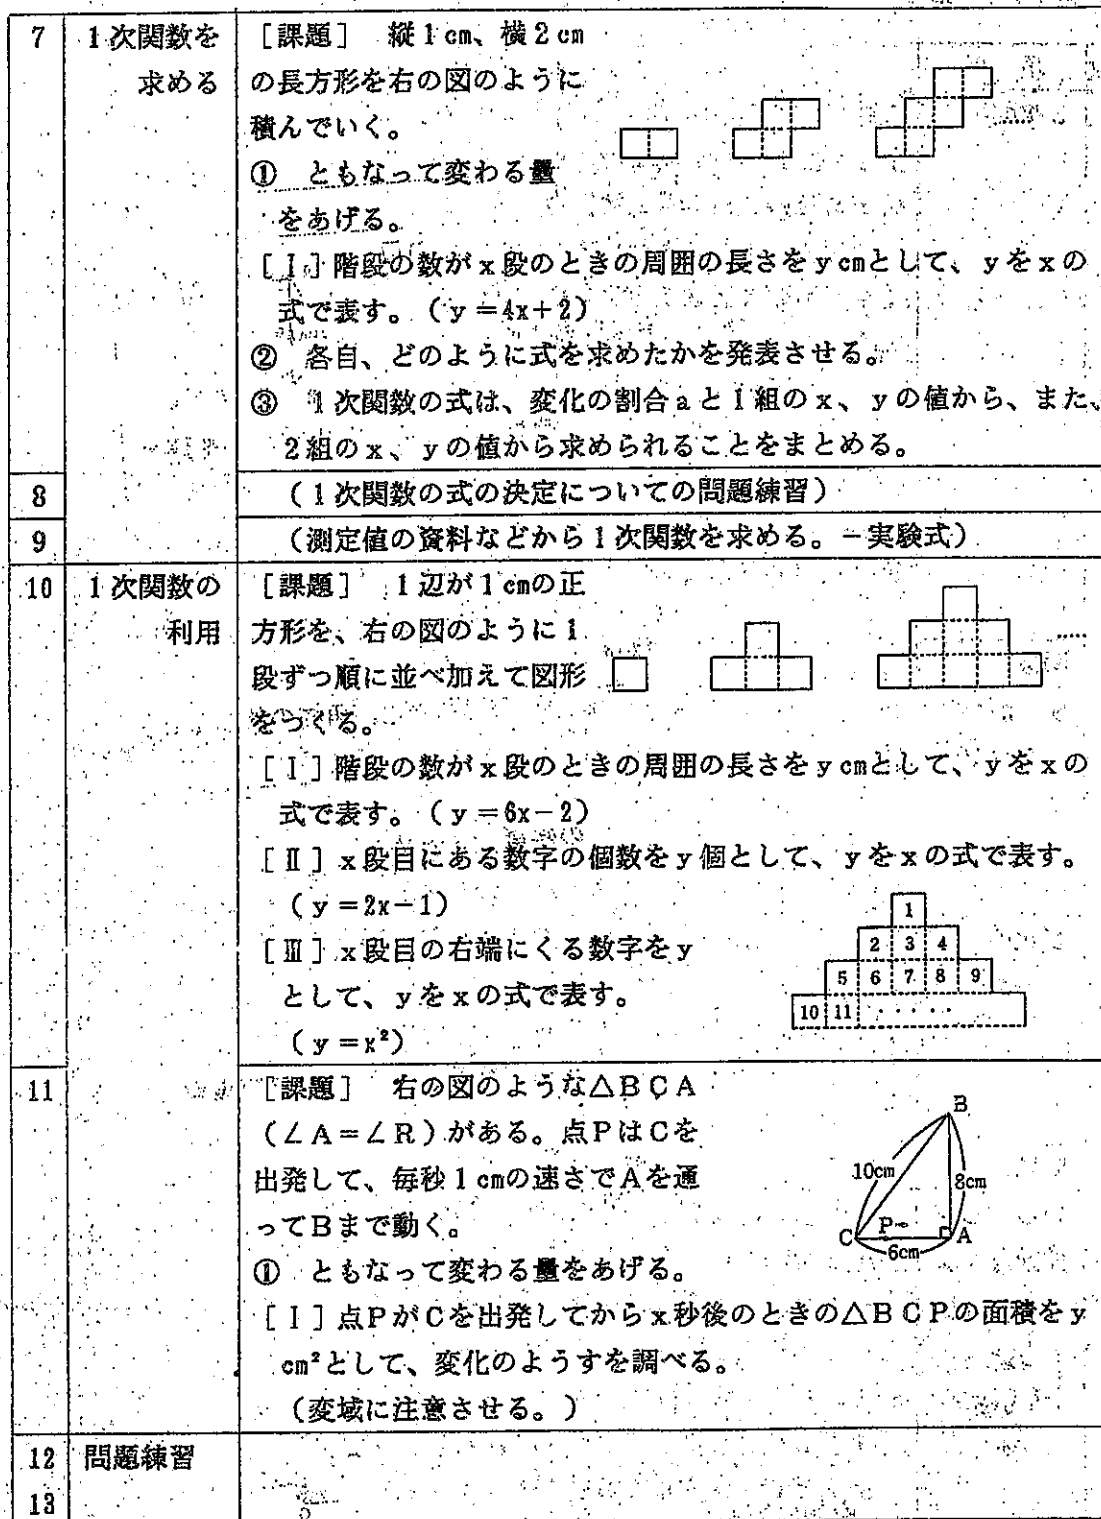 7 1次関数を [課題] 縦1cm、横2cm
求める の長方形を右の図のように
積んでいく。
① ともなって変わる量
をあげる。
[Ⅰ]階段の数がx段のときの周囲の長さをycmとして、yをxの
式で表す。(y=4x+2)
② 各自、どのように式を求めたかを発表させる。
③ 1次関数の式は、変化の割合aと1組のx、yの値から、また、
2組のx、yの値から求められることをまとめる。
8 (1次関数の式の決定についての問題練習)
9 (測定値の資料などから1次関数を求める。-実験式)
10 1次関数の [課題] 1辺が1cmの正
利用 方形を、右の図のように1
段ずつ順に並べ加えて図形
をつくる。
[Ⅰ]階段の数がx段のときの周囲の長さをycmとして、yをxの
式で表す。(y=6x-2)
[Ⅱ]x段目にある数字の個数をy個として、yをxの式で表す。
(y=2x-1)
[Ⅲ]x段目の右端にくる数字をy
として、yをxの式で表す。
(y=x²)
1
2 3 4
5 6 7 8 9
10 11 ・・・・・
11 [課題] 右の図のような△BCA
(∠A=∠R)がある。点PはCを
出発して、毎秒1cmの速さでAを通
ってBまで動く。
B
10cm 8cm
C P A
6cm
① ともなって変わる量をあげる。
[Ⅰ]点PがCを出発してからx秒後のときの△BCPの面積をy
cm²として、変化のようすを調べる。
(変域に注意させる。)
12 問題練習
13